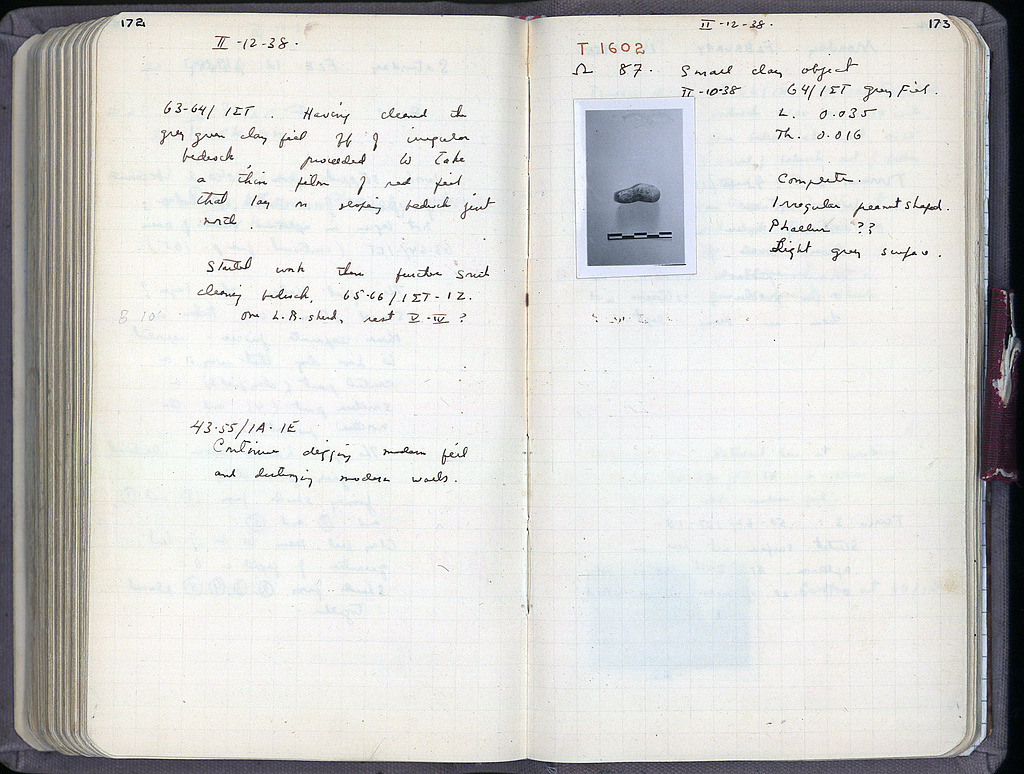 172
II-12-38.
63-64/1ΣT. Having cleaned the
grey green clay fill off of irregular
bedrock proceeded to take
a thin film of red fill
that lay on sloping bedrock just
north.
Started work then further south
cleaning bedrock, 65-66/1ΣT-1Z.
B 10
one L.B. sherd, rest V-IV ?
43-55/1A-1E
Continue digging modern fill
and destroying modern walls.
173
II-12-38.
T 1602
Ω 87. Small clay object
II-10-38 64/1ΣT grey fill.
L. 0.035
Th. 0.016
Complete.
Irregular peanut shaped.
Phallus ??
Light grey surface.